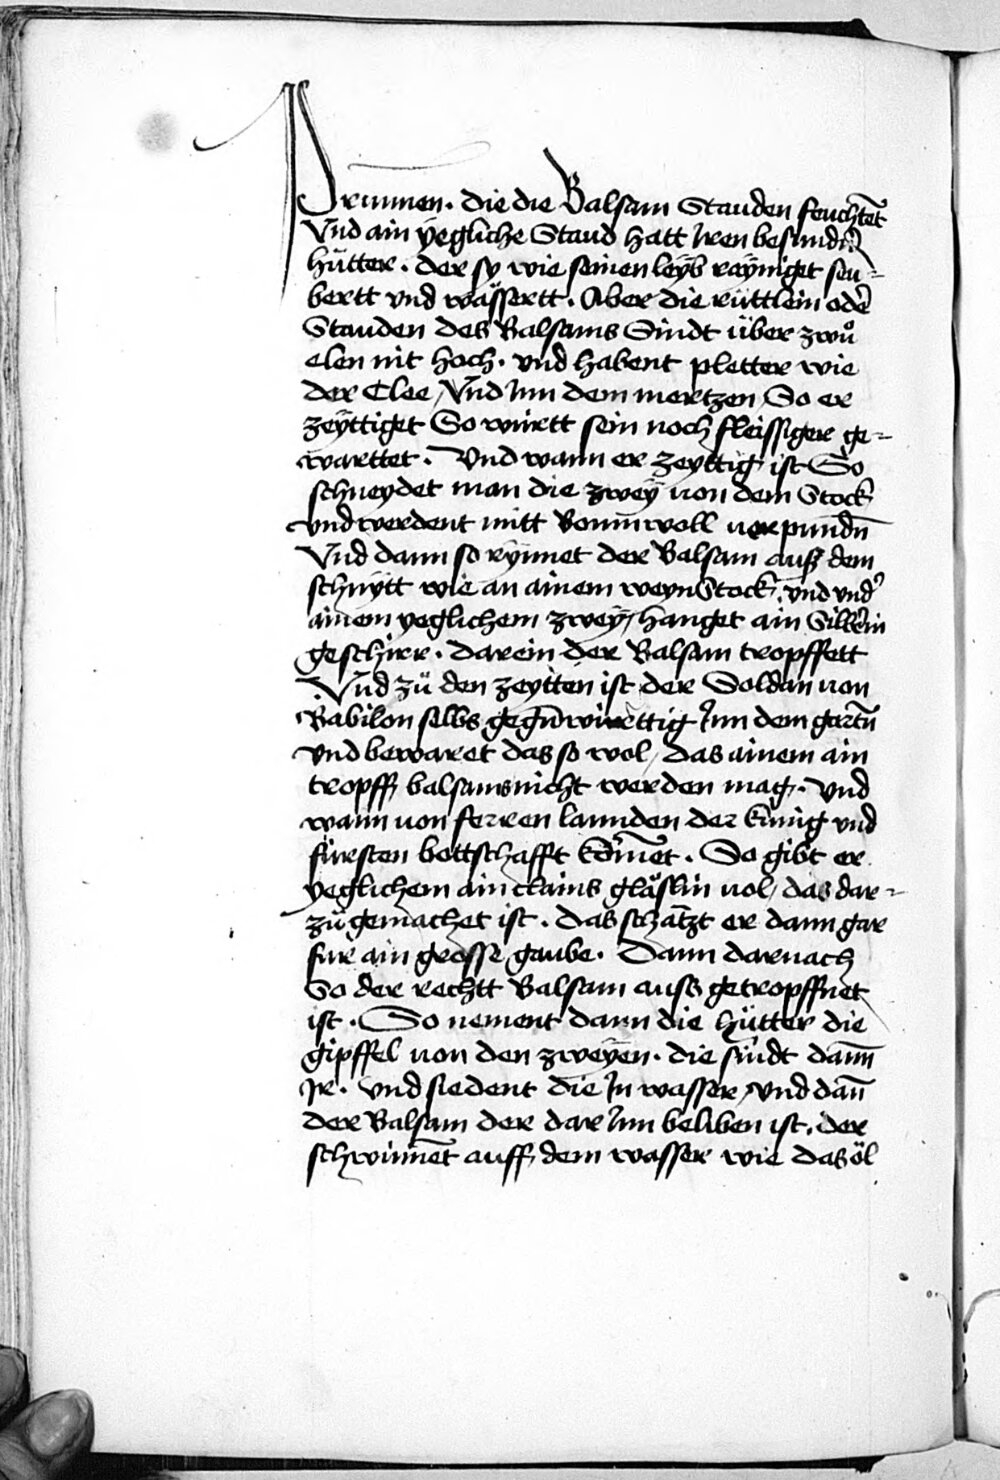 Prunnen. die die Balsam Stauden feuchtēt
Vnd ain yegliche Staud hatt Jren besundern
hütter. der sy wie seinen leyb rayniget seu=
bertt vnd wässertt. Aber die rüttlein oder
Stauden des Balsams Sindt über zwů
elen nit hoch. vnd habent pletter wie
der Clee / Vnd Jnn dem mertzen So er
zeyttiget So wirtt sein noch fleissiger ge=
warttet. Vnd wann er zeyttig ist So
schneydet man die zwey von dem Stock
vnd werdent mitt Bommwoll verpundn̄
Vnd dann so rynnet der Balsam auß dem
schnytt wie an ainem weynStock. vnd vnd'
ainem yeglichem zwey / hanget ain Silberin
geschirr. darein der Balsam tropffett
Vnd zü den zeytten ist der Soldan von
Babilon selbs gegn̄wirttig Jnn dem gartn̄
vnd bewaret das so wol / das ainem ain
tropff balsams nicht werden mag. vnd
wann von ferren lannden der künig vnd
fürsten bottschafft köm̄et. So gibt er
yeglichem ain clains gläslin vol / das dar=
zü gemachet ist. das schätzt er dann gar
für ain grosse gaube. Dann darnach
So der rechtt Balsam auss getropffnet
ist. So nement dann die hütter die
gipffel von den zweyen. die sindt dann̄
Jr. vnd siedent die Jn wasser / vnd dan̄
der Balsam der dar Jnn beliben ist. der
schwim̄et auff dem wasser wie das öl